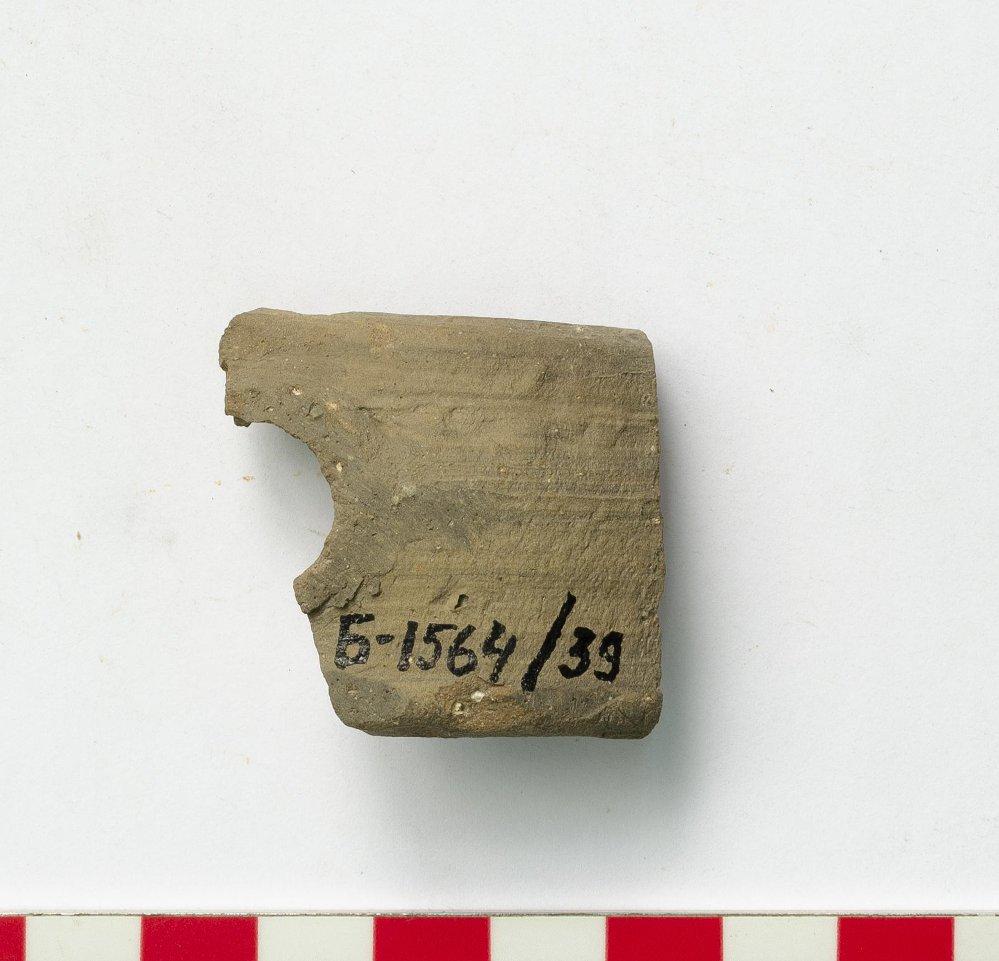 Б-1564/39